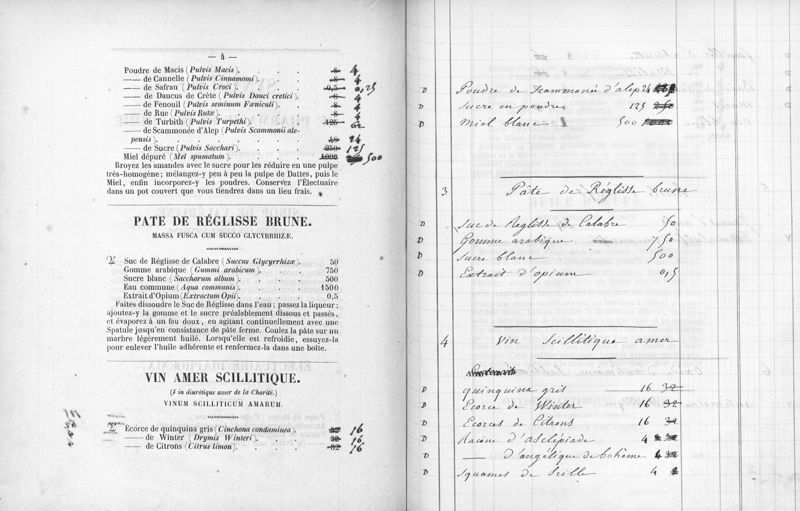 — 4 —
Poudre de Macis (Pulvis Macis). 8 4
—— de Cannelle (Pulvis Cinnamomi). 8 4
—— de Safran (Pulvis Croci). 0,25
—— de Daucus de Crète (Pulvis Dauci cretici). 8 4
—— de Fenouil (Pulvis seminum Fœniculi). 8 4
—— de Rue (Pulvis Rutæ). 8 4
—— de Turbith (Pulvis Turpethi). 125 62
—— de Scammonée d'Alep (Pulvis Scammonii ale-
pensis). 48 24
—— de Sucre (Pulvis Sacchari). 250 125
Miel dépuré (Mel spumatum). 1000 500
Broyez les amandes avec le sucre pour les réduire en une pulpe
très-homogène; mélangez-y peu à peu la pulpe de Dattes, puis le
Miel, enfin incorporez-y les poudres. Conservez l'Électuaire
dans un pot couvert que vous tiendrez dans un lieu frais.
PATE DE RÉGLISSE BRUNE.
MASSA FUSCA CUM SUCCO GLYCYRRHIZÆ.
Suc de Réglisse de Calabre (Succus Glycyrrhizæ). 50
Gomme arabique (Gummi arabicum). 750
Sucre blanc (Saccharum album). 500
Eau commune (Aqua communis). 1500
Extrait d'Opium (Extractum Opii). 0,5
Faites dissoudre le Suc de Réglisse dans l'eau; passez la liqueur;
ajoutez-y la gomme et le sucre préalablement dissous et passés,
et évaporez à un feu doux, en agitant continuellement avec une
Spatule jusqu'en consistance de pâte ferme. Coulez la pâte sur un
marbre légèrement huilé. Lorsqu'elle est refroidie, essuyez-la
pour enlever l'huile adhérente et renfermez-la dans une boîte.
VIN AMER SCILLITIQUE.
(Vin diurétique amer de la Charité.)
VINUM SCILLITICUM AMARUM.
Ecorce de quinquina gris (Cinchona condaminea). 32 16
—— de Winter (Drymis Winteri). 32 16
—— de Citrons (Citrus limon). 32 16
D Poudre de Scammonée d'alep 24
D Sucre en poudre 125 250
D Miel blanc 500 1000
3 Pâte de Réglisse brune
D Suc de Reglisse de Calabre 50
D Gomme arabique 750
D Sucre blanc 500
D Extrait d'opium 0,5
4 Vin Scillitique amer
D quinquina gris 16 32
D Ecorce de Winter 16 32
D Ecorces de Citrons 16 32
D Racine d'asclépiade 4
D —— d'angélique de bohême 4
D Squames de Scille 4